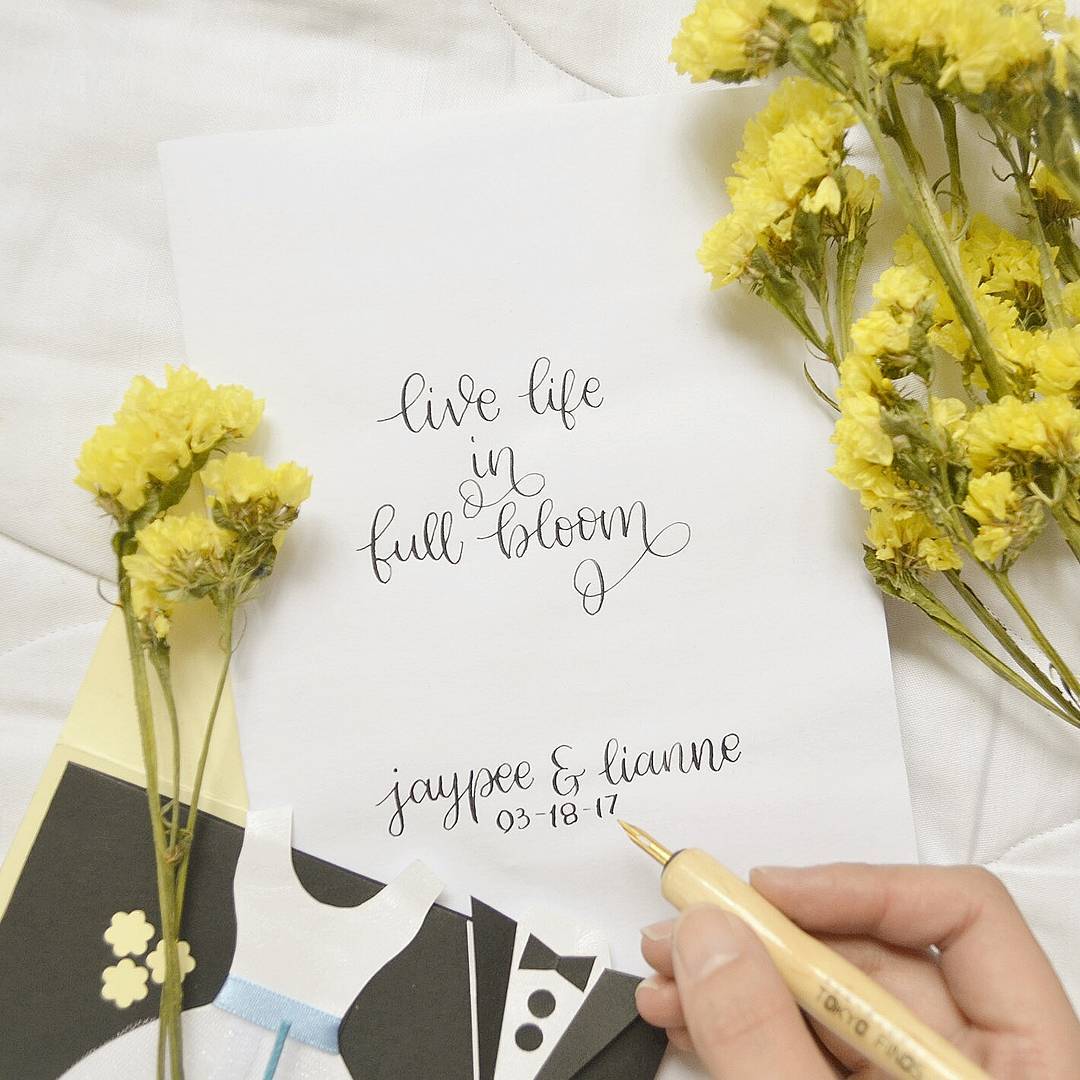 live life
in
full bloom
jaypee & lianne
03-18-17
TOKYO FINDS